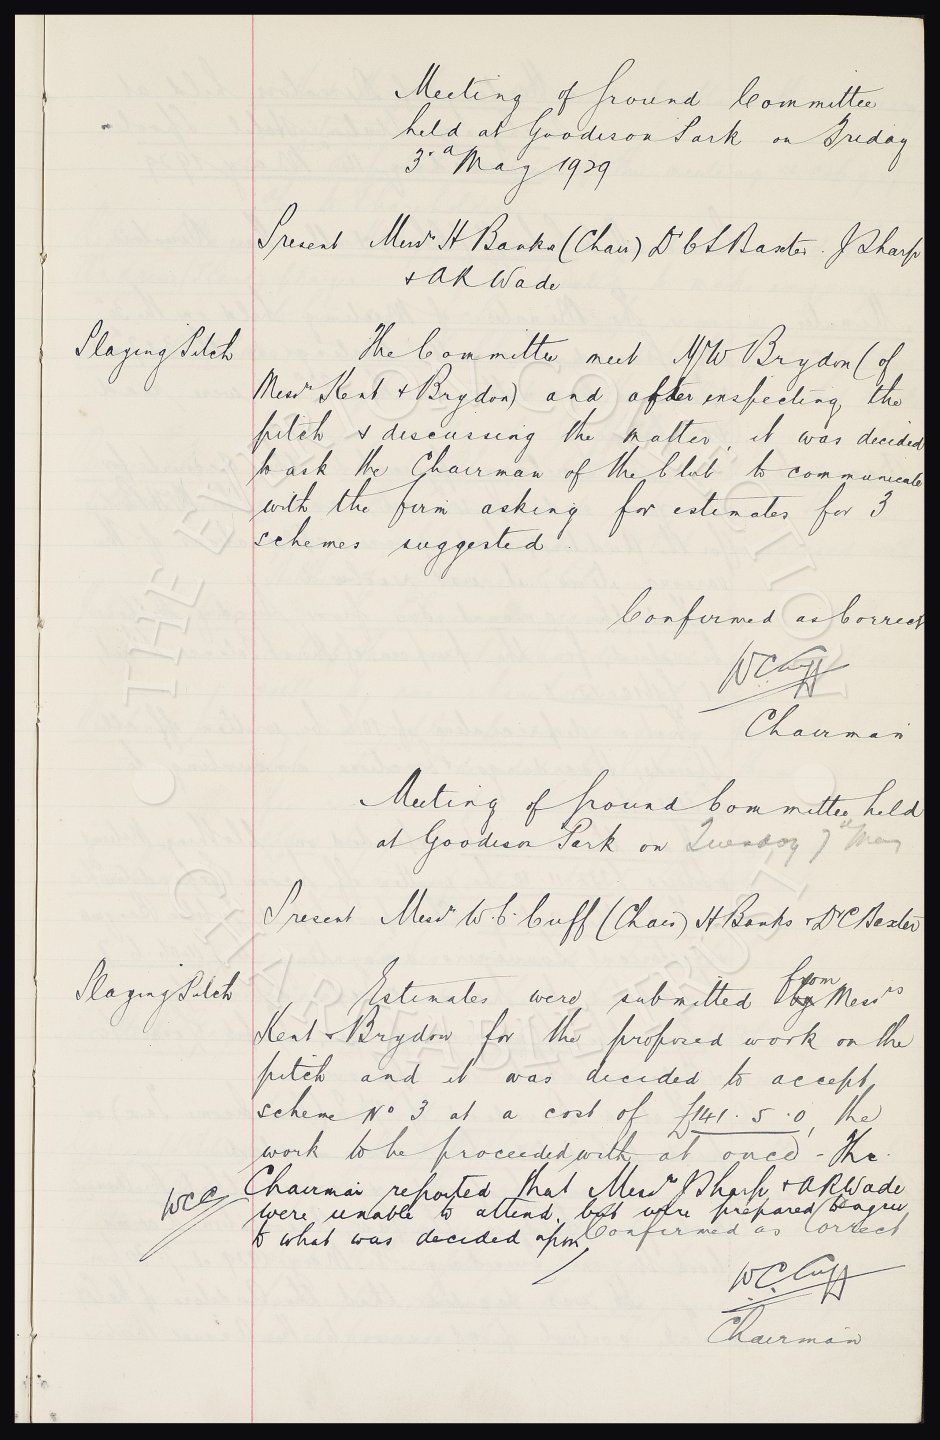 Meeting of Ground Committee
held at Goodison Park on Friday
3rd May 1929
Present Messrs H Banks (Chair) Dr C S Baxter. J Sharp
& A R Wade
Playing Pitch
The Committee meet Mr W Brydon (of
Messrs Kent & Brydon) and after inspecting the
pitch & discussing the matter, it was decided
to ask the Chairman of the Club to communicate
with the firm asking for estimates for 3
schemes suggested.
Confirmed as Correct
W C Cuff
Chairman
Meeting of Ground Committee held
at Goodison Park on Tuesday 7th May
Present Messrs W. C. Cuff (Chair) H Banks & Dr C Baxter
Playing Pitch
Estimates were submitted from Messrs
Kent & Brydon for the proposed work on the
pitch and it was decided to accept
scheme No 3 at a cost of £141. 5. 0, the
work to be proceeded with at once - The
WCC
Chairman reported that Messrs J Sharp & A R Wade
were unable to attend, but were prepared to agree
to what was decided upon,
Confirmed as Correct
W.C. Cuff
Chairman